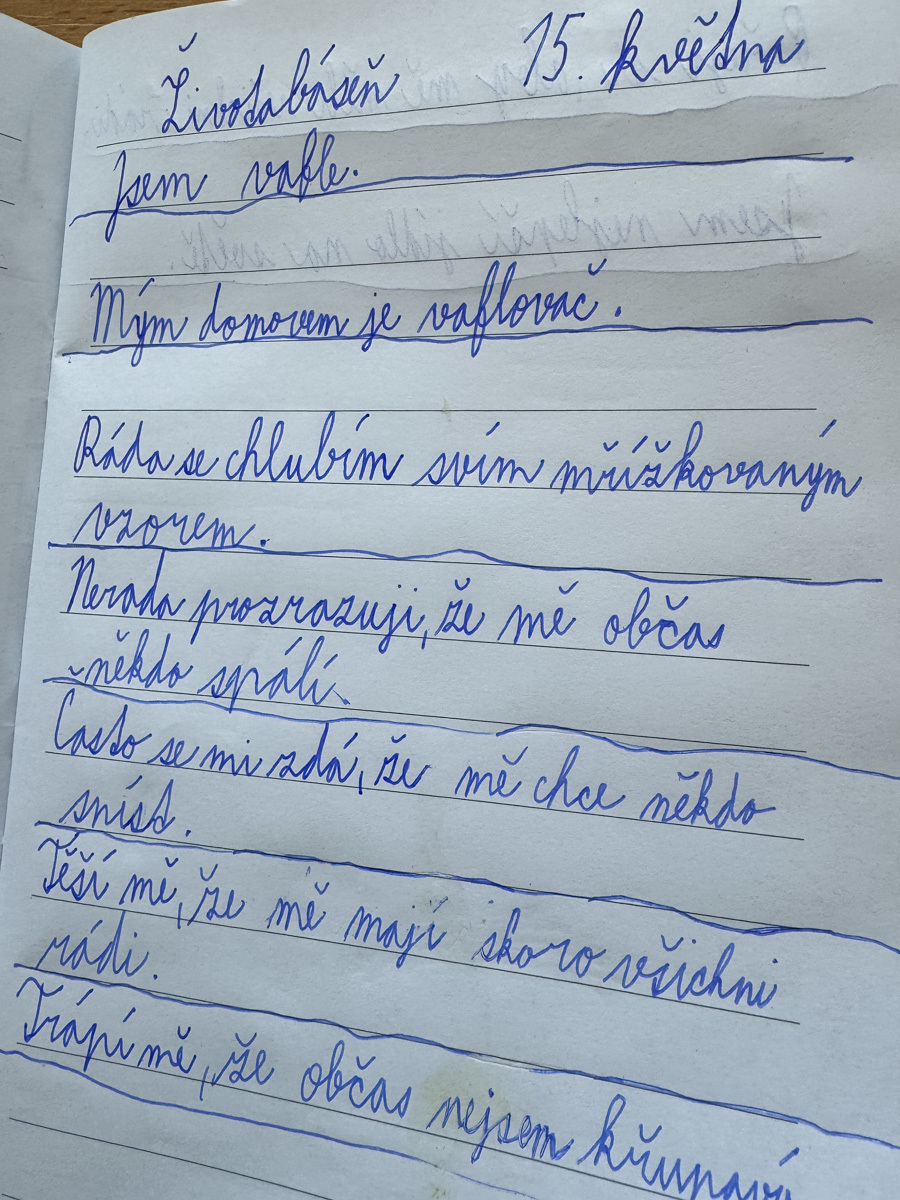 Životabáseň 15. května
Jsem vafle.
Mým domovem je vaflovač.
Ráda se chlubím svím mřížkovaným
vzorem.
Nerada prozrazuji, že mě občas
někdo spálí.
Často se mi zdá, že mě chce někdo
sníst.
Těší mě, že mě mají skoro všichni
rádi.
Trápí mě, že občas nejsem